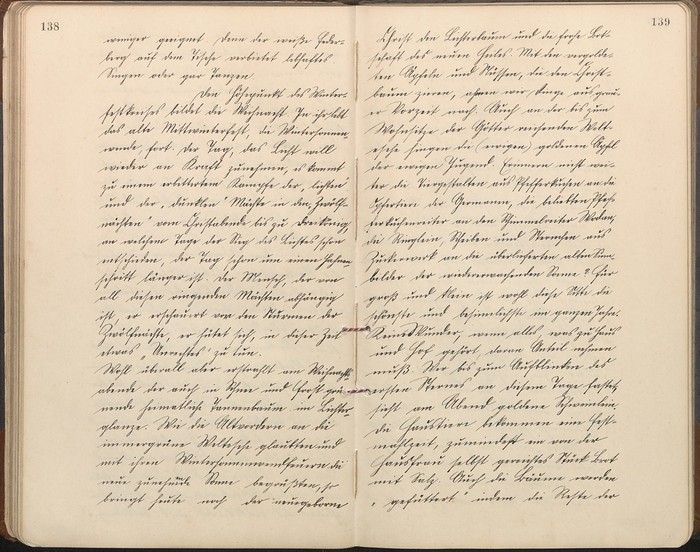 138
weniger geeignet. Denn der weiße Feder-
berg auf dem Tische verbietet lebhaftes
Singen oder gar Tanzen.
Den Höhepunkt des Winter-
festkreises bildet die Weihnacht. In ihr lebt
das alte Mittwinterfest, die Wintersonnen-
wende fort. Der Tag, das Licht will
wieder an Kraft zunehmen, es kommt
zu einem erbitterten Kampfe der „lichten"
und der „dunklen" Mächte in den „Zwölf-
nächten" vom Christabende bis zu Dreikönig,
an welchem Tage der Sieg des Lichtes schon
entschieden, der Tag schon um einen Hahnen-
schritt länger ist. Der Mensch, der von
all diesen ringenden Mächten abhängig
ist, er erschauert vor den Stürmen der
Zwölfnächte, er hütet sich, in dieser Zeit
etwas „Unrechtes" zu tun.
Wohl überall aber erstrahlt am Weihnachts-
abende der auch in Schnee und Frost grü-
nende heimatliche Tannenbaum im Lichter-
glanze. Wie die Altvordern an die
immergrüne Weltesche glaubten und
mit ihren Wintersonnwendfeuern die
neu zunehmende Sonne begrüßten, so
bringt heute noch der neugeborne
139
Christ den Lichterbaum und die frohe Bot-
schaft des neuen Heiles. Mit den vergolde-
ten Äpfeln und Nüssen, die den Christ-
baum zieren, ahmen wir Dinge aus grau-
er Vorzeit nach. Auch an der bis zum
Wohnsitze der Götter reichenden Welt-
esche hingen die (ewigen) goldenen Äpfel
der ewigen Jugend. Erinnern nicht wei-
ter die Tiergestalten aus Pfefferkuchen an die
Opfertiere der Germanen, die beliebten Pfef-
ferkuchenreiter an den Schimmelreiter Wodan,
die Ringlein, Scheiben und Sternchen aus
Zuckerwerk an die überlieferten alten Sinn-
bilder der wiedererwachenden Sonne? Für
groß und klein ist wohl diese Sitte die
schönste und heimlichste im ganzen Jahre.
Kein Wunder, wenn alles, was zu Haus
und Hof gehört, daran Anteil nehmen
muß. Wer bis zum Aufblinken des
ersten Sternes an diesem Tage fastet,
sieht am Abend goldene Schweinlein.
Die Haustiere bekommen eine Fest-
mahlzeit, zumindest ein von der
Hausfrau selbst gereichtes Stück Brot
mit Salz. Auch die Bäume werden
„gefüttert" indem die Reste der